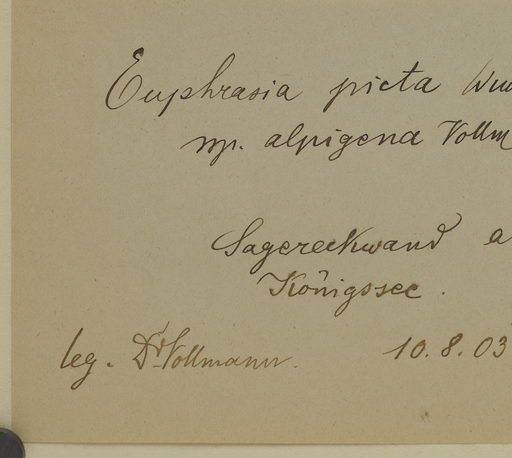 Euphrasia picta
ssp. alpigena Vollm
Sagereckwand a
Königssee.
leg. Dr Vollmann. 10.8.03